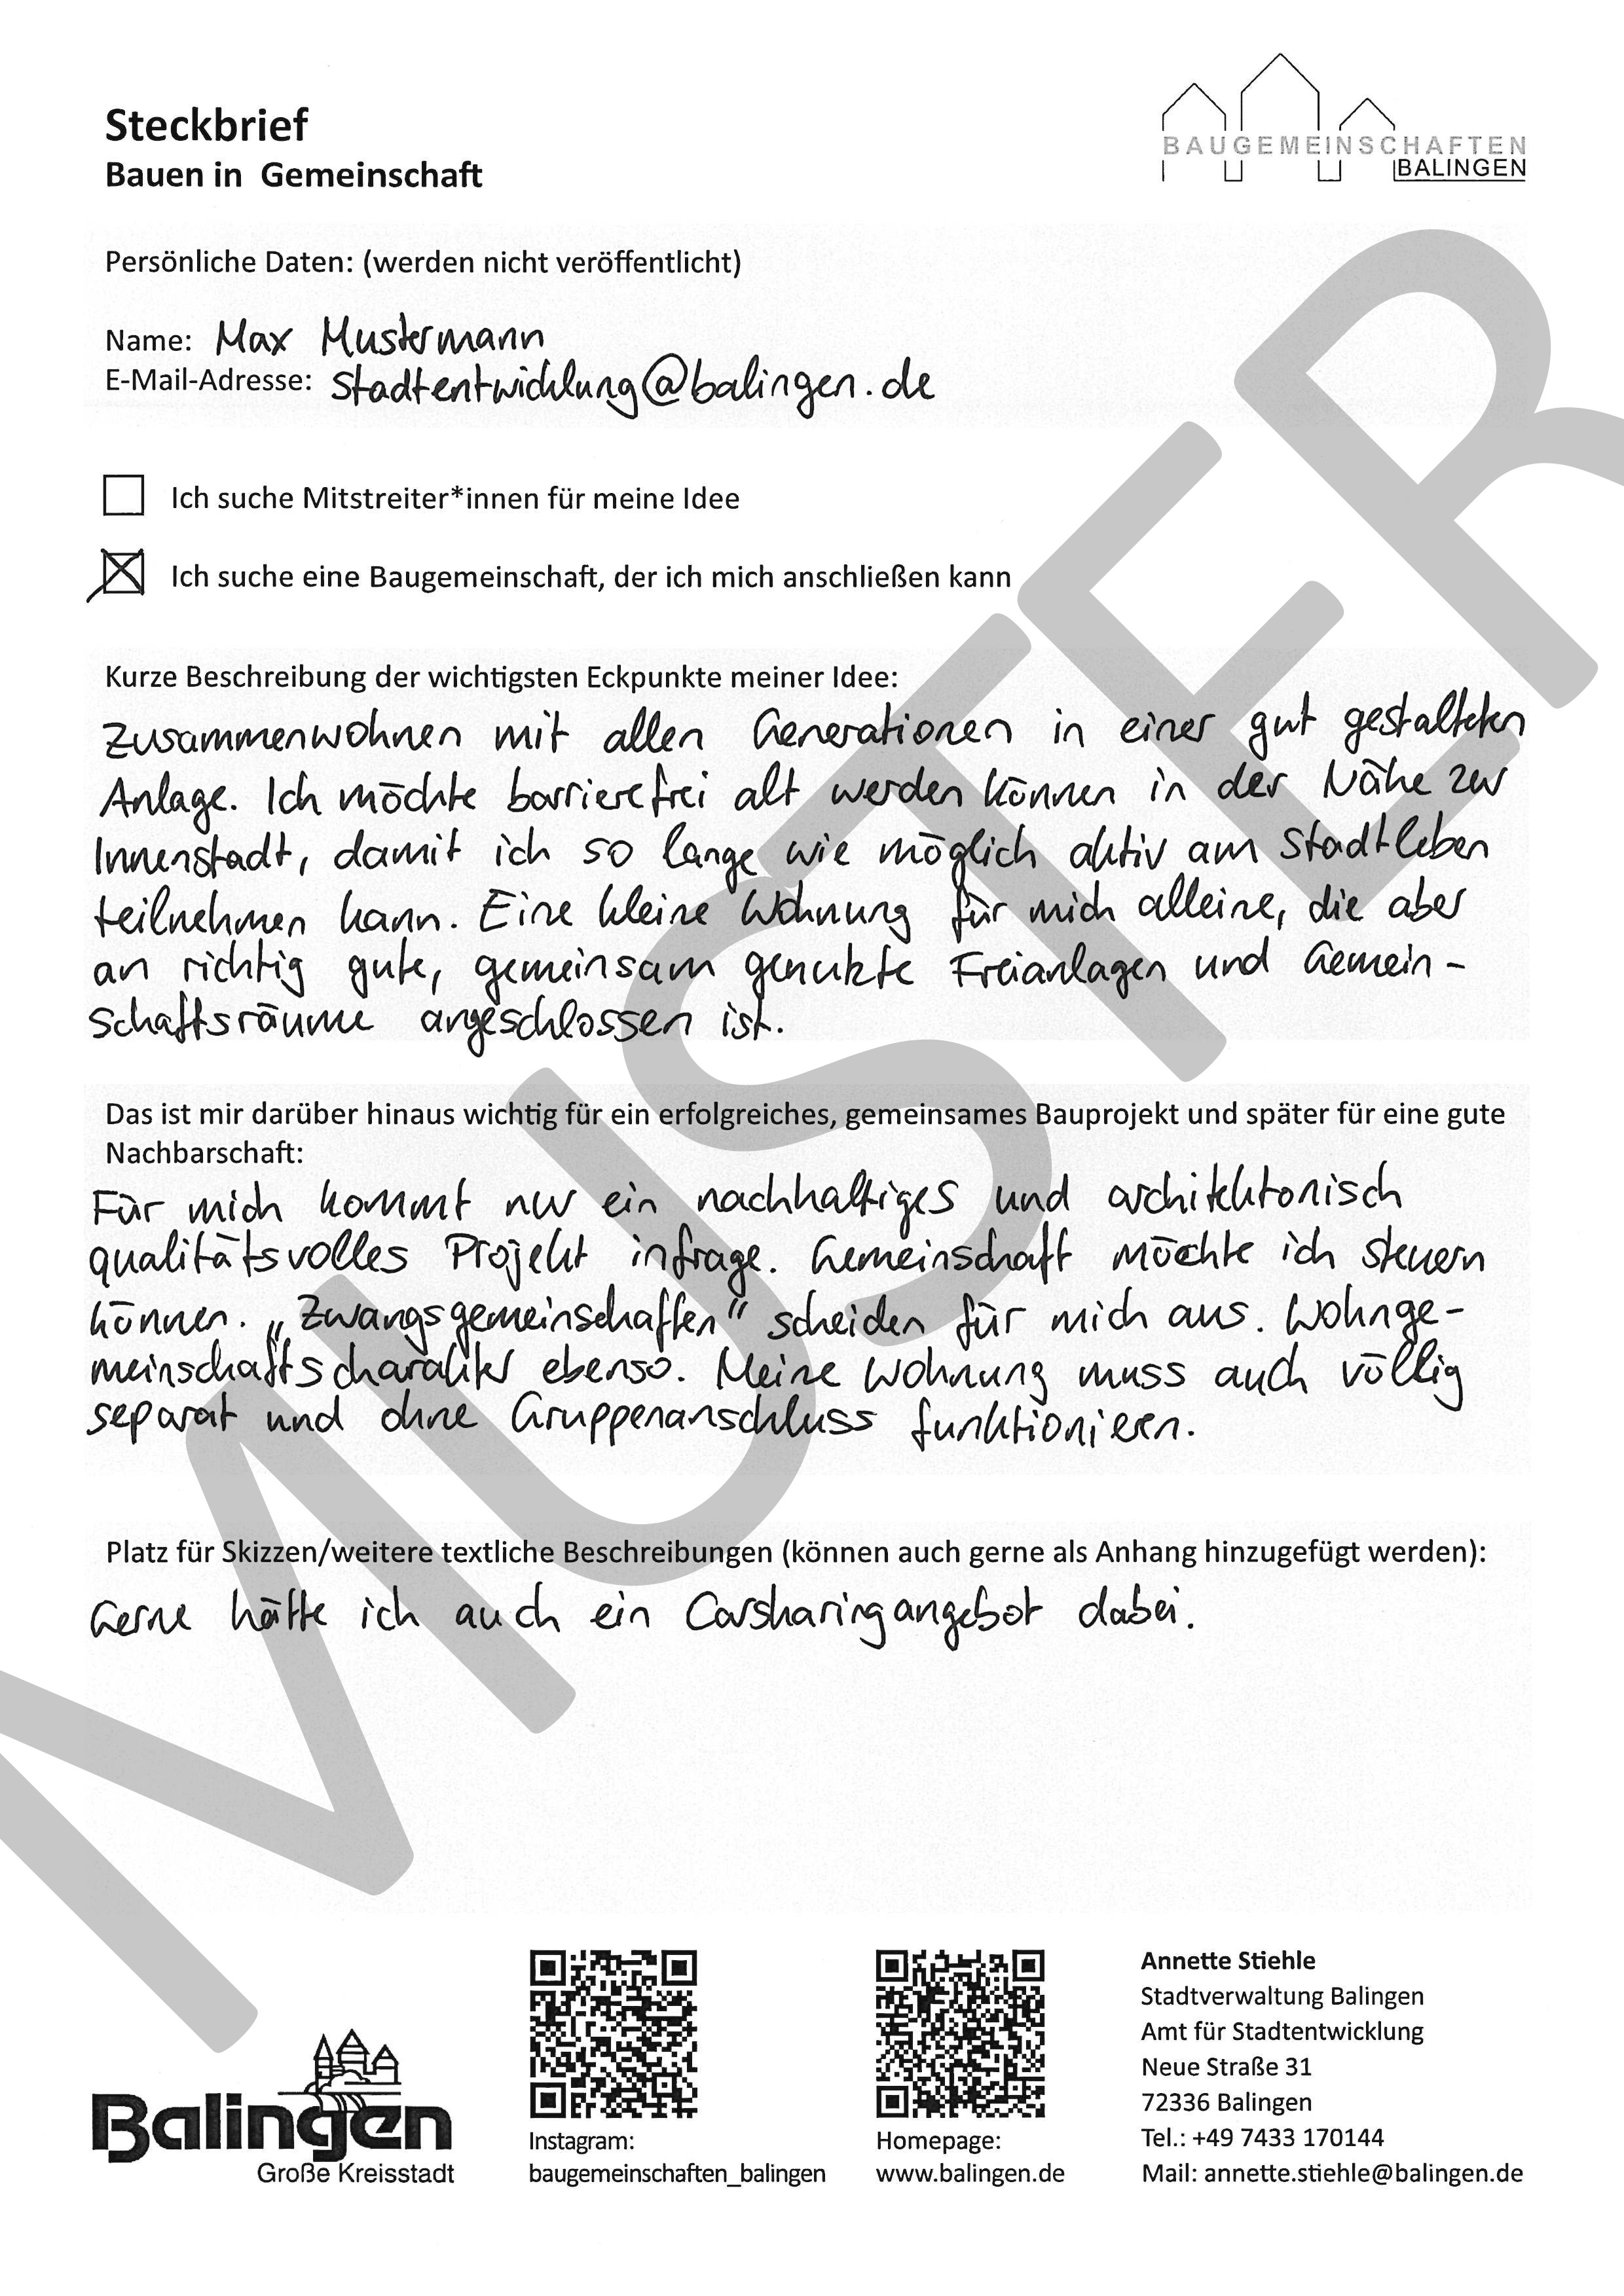 Steckbrief
Bauen in Gemeinschaft
BAUGEMEINSCHAFTEN
BALINGEN
Persönliche Daten: (werden nicht veröffentlicht)
Name: Max Mustermann
E-Mail-Adresse: stadtentwicklung@balingen.de
Ich suche Mitstreiter*innen für meine Idee
Ich suche eine Baugemeinschaft, der ich mich anschließen kann
Kurze Beschreibung der wichtigsten Eckpunkte meiner Idee:
Zusammenwohnen mit allen Generationen in einer gut gestalteten
Anlage. Ich möchte barrierefrei alt werden können in der Nähe zur
Innenstadt, damit ich so lange wie möglich aktiv am Stadtleben
teilnehmen kann. Eine kleine Wohnung für mich alleine, die aber
an richtig gute, gemeinsam genutzte Freianlagen und Gemein-
schaftsräume angeschlossen ist.
Das ist mir darüber hinaus wichtig für ein erfolgreiches, gemeinsames Bauprojekt und später für eine gute
Nachbarschaft:
Für mich kommt nur ein nachhaltiges und architektonisch
qualitätsvolles Projekt infrage. Gemeinschaft möchte ich steuern
können. „Zwangsgemeinschaften“ scheiden für mich aus. Wohnge-
meinschaftscharakter ebenso. Meine Wohnung muss auch völlig
separat und ohne Gruppenanschluss funktionieren.
Platz für Skizzen/weitere textliche Beschreibungen (können auch gerne als Anhang hinzugefügt werden):
Gerne hätte ich auch ein Carsharingangebot dabei.
MUSTER
Balingen
Große Kreisstadt
Instagram:
baugemeinschaften_balingen
Homepage:
www.balingen.de
Annette Stiehle
Stadtverwaltung Balingen
Amt für Stadtentwicklung
Neue Straße 31
72336 Balingen
Tel.: +49 7433 170144
Mail: annette.stiehle@balingen.de